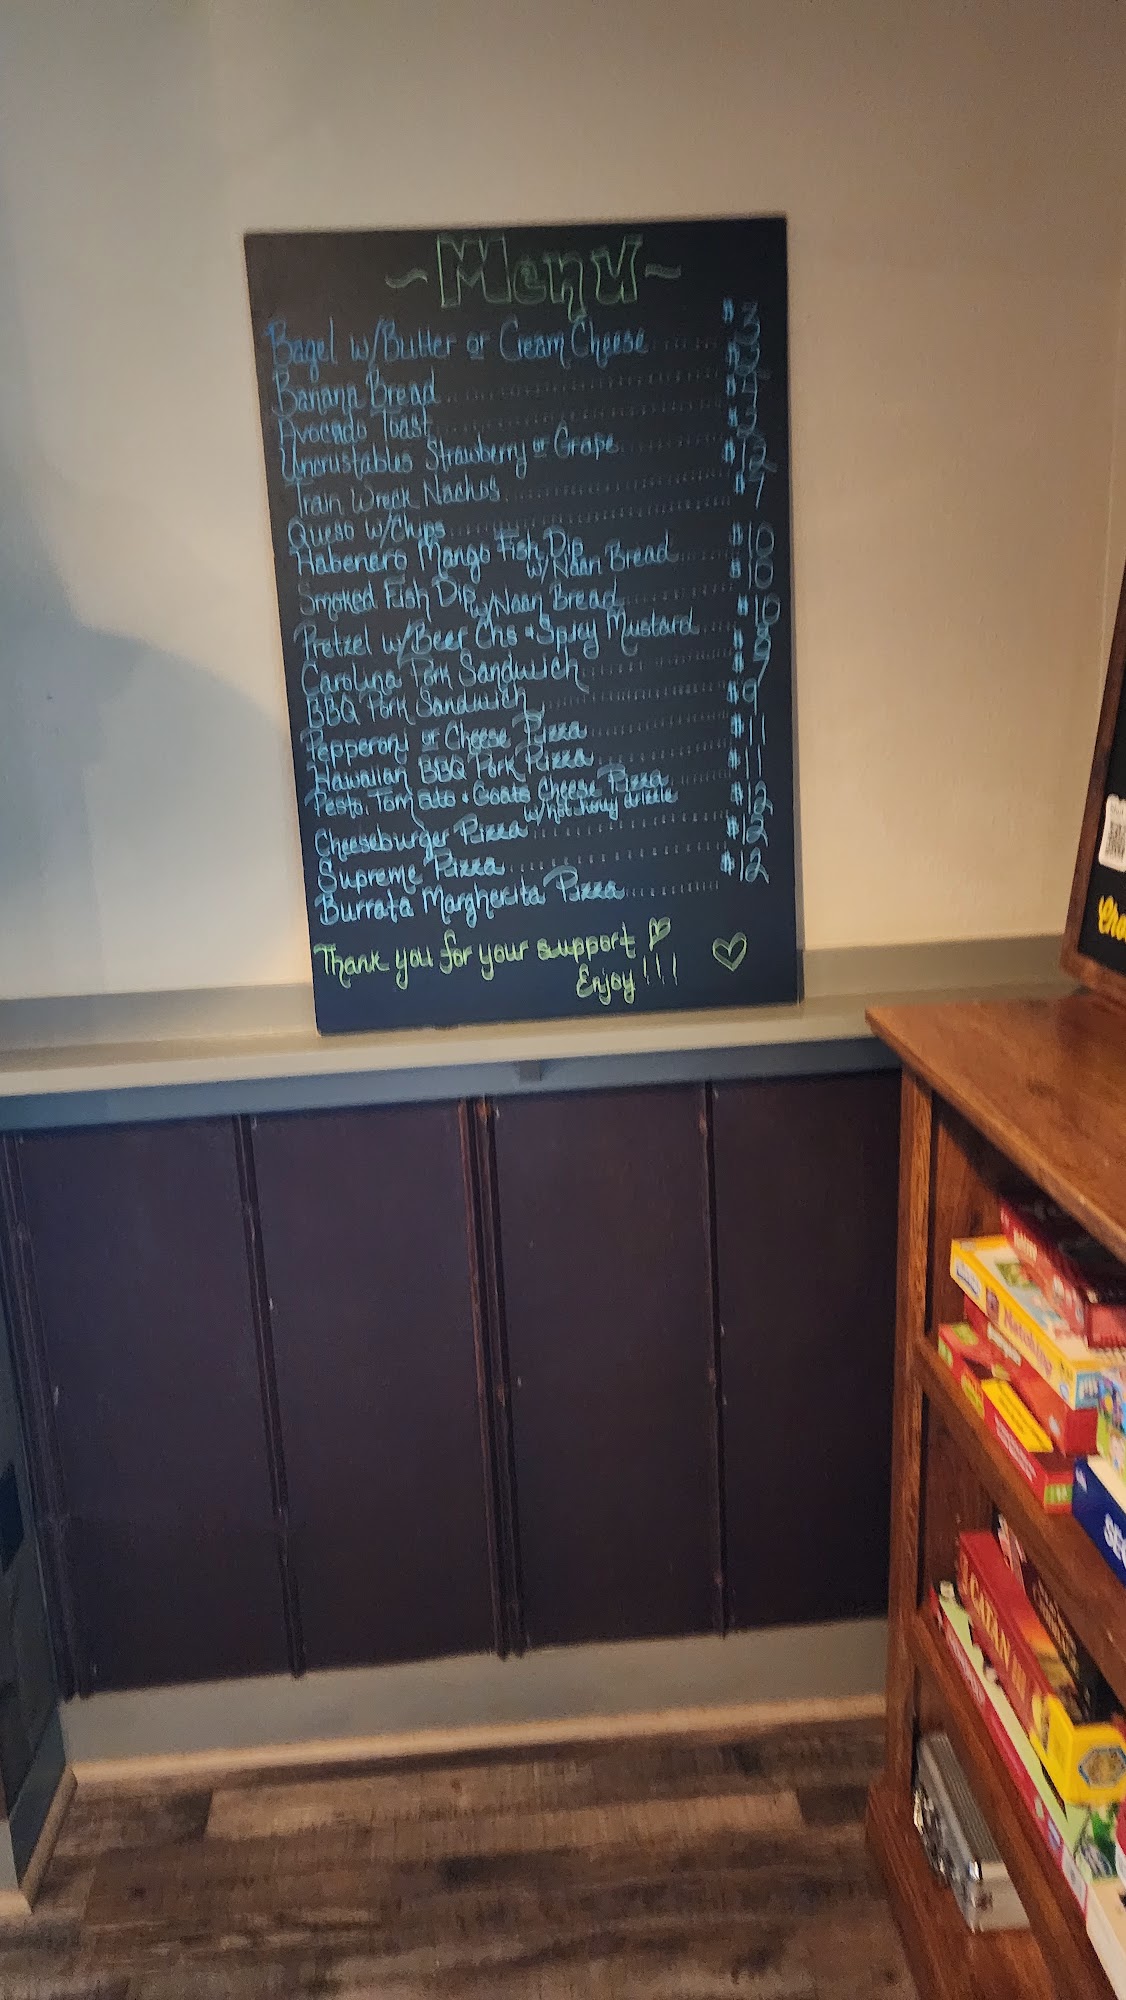 ~Menu~
Bagel w/Butter or Cream Cheese........ $3
Banana Bread........ $3
Avocado Toast........ $4
Uncrustables Strawberry or Grape........ $3
Train Wreck Nachos........ $12
Queso w/Chips........ $7
Habenero Mango Fish Dip
w/Naan Bread........ $10
Smoked Fish Dip w/Naan Bread........ $10
Pretzel w/Beer Chs & Spicy Mustard..... $10
Carolina Pork Sandwich........ $9
BBQ Pork Sandwich........ $9
Pepperoni or Cheese Pizza........ $9
Hawaiian BBQ Pork Pizza........ $11
Pesto, Tomato & Goats Cheese Pizza $11
w/hot honey drizzle
Cheeseburger Pizza........ $12
Supreme Pizza........ $12
Burrata Margherita Pizza........ $12
Thank you for your support
Enjoy!!!
CATAN